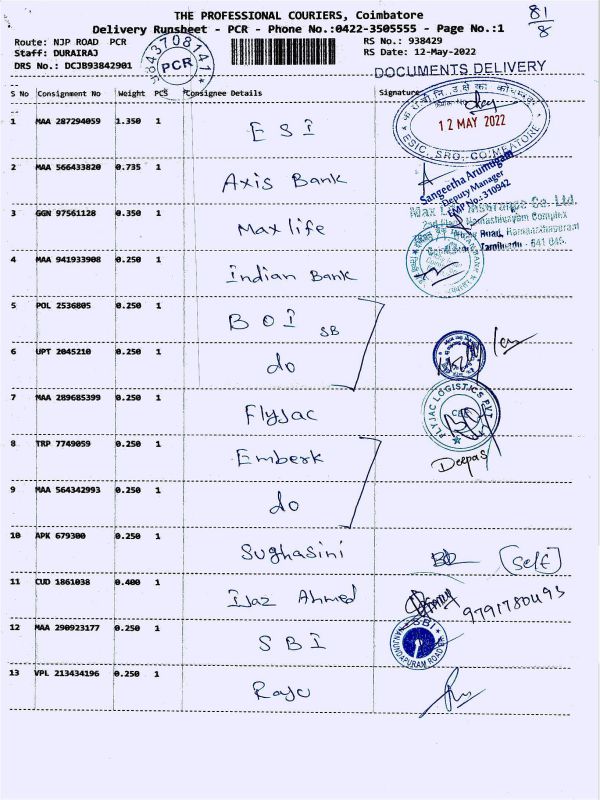 THE PROFESSIONAL COURIERS, Coimbatore
81/8
Delivery Runsheet - PCR - Phone No.:0422-3505555 - Page No.:1
Route: NJP ROAD PCR
RS No.: 938429
Staff: DURAIRAJ
RS Date: 12-May-2022
DRS No.: DCJB93842901
9843708141
PCR
DOCUMENTS DELIVERY
S No Consignment No Weight PCS Consignee Details Signature
1 MAA 287294059 1.350 1 ESI
12 MAY 2022
ESIC, SRO, COIMBATORE
2 MAA 566433820 0.735 1 Axis Bank
Sangeetha Arumugam
Deputy Manager
EMP No.: 310942
3 GGN 97561128 0.350 1 Maxlife
Max Life Insurance Co. Ltd.
2nd Floor Complex
Road,
Tamilnadu - 641 045.
4 MAA 941933908 0.250 1 Indian Bank
5 POL 2536805 0.250 1 BOI SB
6 UPT 2045210 0.250 1 do
7 MAA 289685399 0.250 1 Flyjac
FLYJAC LOGISTICS PVT
8 TRP 7749059 0.250 1 Emberk
Deepas
9 MAA 564342993 0.250 1 do
10 APK 679300 0.250 1 Sughasini
[Self]
11 CUD 1861038 0.400 1 Ijaz Ahmed
9791780493
12 MAA 290923177 0.250 1 SBI
SBI
NANJUNDAPURAM ROAD
13 VPL 213434196 0.250 1 Raju